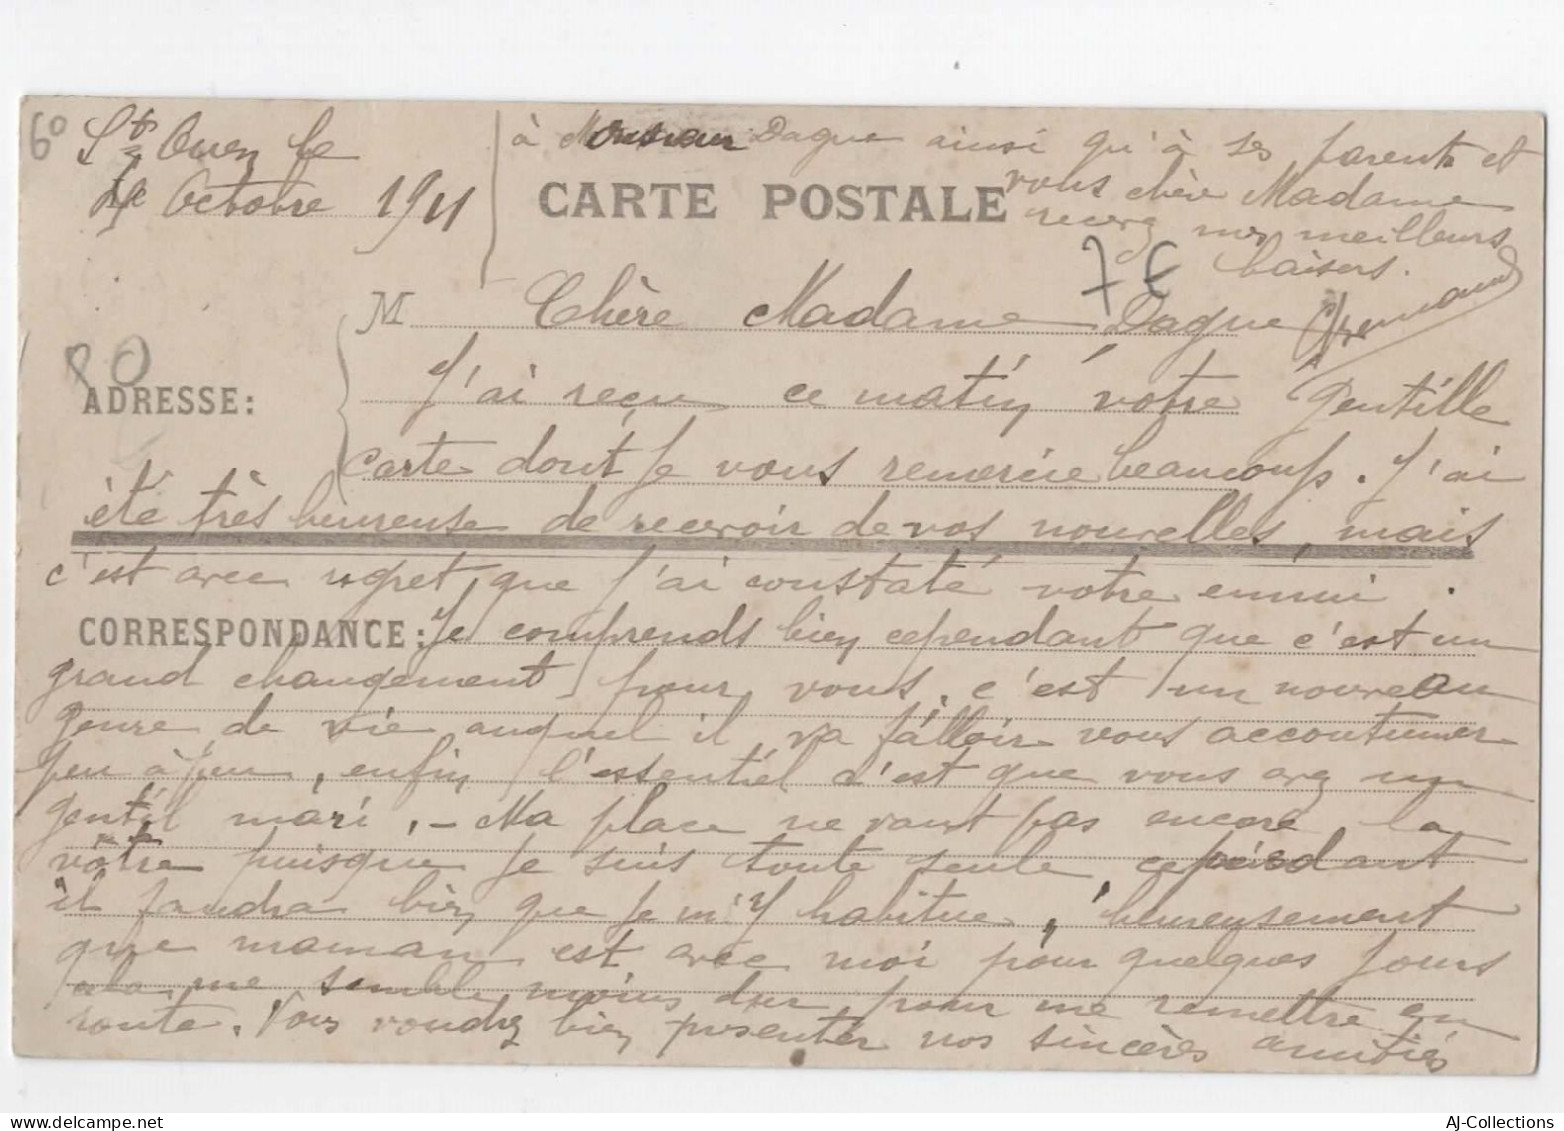 60
St Ouen le
Octobre 1911
à Monsieur Dague ainsi qu'à ses parents et
vous chère Madame
recevez mes meilleurs
baisers.
CARTE POSTALE
7 €
M Chère Madame Dague
80
ADRESSE:
J'ai reçu ce matin votre gentille
carte dont je vous remercie beaucoup. J'ai
été très heureuse de recevoir de vos nouvelles, mais
c'est avec regret que j'ai constaté votre ennui.
CORRESPONDANCE: Je comprends bien cependant que c'est un
grand changement pour vous, c'est un nouveau
genre de vie auquel il va falloir vous accoutumer
peu à peu, enfin l'essentiel c'est que vous avez un
gentil mari. - Ma place ne vaut pas encore la
vôtre puisque je suis toute seule, cependant
il faudra bien que je m'y habitue, heureusement
que maman est avec moi pour quelques jours
cela me semble moins dur pour me remettre en
route. Vous voudrez bien présenter nos sincères amitiés
AJ-Collections